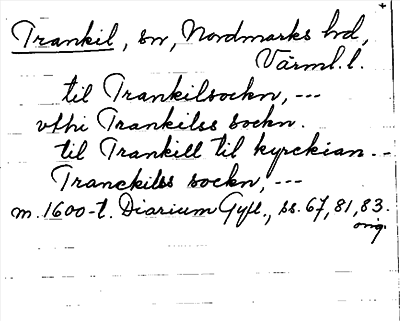 Trankil, sn, Nordmarks hd,
Värml. l.
til Trankilsockn, ---
vthi Trankilss sockn.
til Trankill til kyrckian. --
Tranckilss sockn, ---
m. 1600-t. Diarium Gyll., ss. 67, 81, 83.
orig.